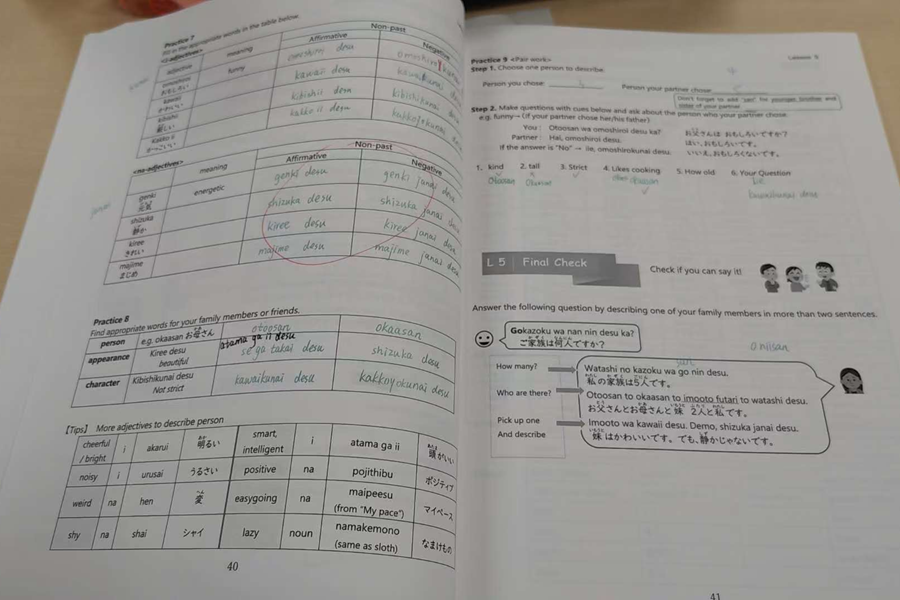 Practice 7
Fill in the appropriate words in the table below.
<i-adjectives>
Non-past
adjective meaning Affirmative Negative
omoshiroi funny omoshiroi desu
おもしろい
kawaii kawaii desu
かわいい
kibishii kibishii desu kibishikunai
厳しい
kakko ii kakko ii desu kakkoyokunai
かっこいい
<na-adjectives>
Non-past
meaning Affirmative Negative
genki energetic genki desu genki janai desu
元気
shizuka shizuka desu shizuka janai desu
静か
kiree kiree desu kiree janai desu
きれい
majime majime desu majime janai desu
まじめ
Practice 8
Find appropriate words for your family members or friends.
person e.g. okaasan お母さん otoosan okaasan
atama ga ii desu
appearance Kiree desu se ga takai desu shizuka desu
beautiful
character Kibishikunai desu kawaikunai desu kakkoyokunai desu
Not strict
【Tips】 More adjectives to describe person
cheerful / bright i akarui 明るい smart, intelligent i atama ga ii 頭がいい
noisy i urusai うるさい positive na pojithibu ポジティブ
weird na hen 変 easygoing na maipeesu (from "My pace") マイペース
shy na shai シャイ lazy noun namakemono (same as sloth) なまけもの
40
Lesson 5
Practice 9 <Pair work>
Step 1. Choose one person to describe.
Person you chose: Person your partner chose:
Don't forget to add "san" for younger brother and sister of your partner.
Step 2. Make questions with cues below and ask about the person who your partner chose.
e.g. funny→ (if your partner chose her/his father)
You : Otoosan wa omoshiroi desu ka? お父さんは おもしろいですか?
Partner : Hai, omoshiroi desu. はい、おもしろいです。
If the answer is "No" → Iie, omoshirokunai desu. いいえ、おもしろくないです。
1. kind 2. tall 3. Strict 4. Likes cooking 5. How old 6. Your Question
Otoosan
kawaikunai desu
L 5 Final Check
Check if you can say it!
Answer the following question by describing one of your family members in more than two sentences.
Gokazoku wa nan nin desu ka?
ご家族は何人ですか?
oniisan
How many?
Watashi no kazoku wa go nin desu.
私の家族は5人です。
Who are there?
Otoosan to okaasan to imooto futari to watashi desu.
お父さんとお母さんと妹 2人と私です。
Pick up one
And describe
Imooto wa kawaii desu. Demo, shizuka janai desu.
妹 はかわいいです。でも、静かじゃないです。
41